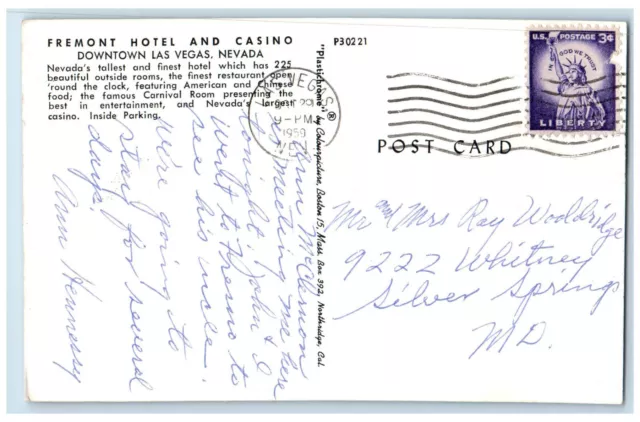 FREMONT HOTEL AND CASINO
DOWNTOWN LAS VEGAS, NEVADA
Nevada's tallest and finest hotel which has 225
beautiful outside rooms, the finest restaurant open
'round the clock, featuring American and Chinese
food; the famous Carnival Room presenting the
best in entertainment, and Nevada's largest
casino. Inside Parking.
P30221
"Plastichrome"® by Colourpicture, Boston 15, Mass. Box 392, Northridge, Cal.
VEGAS
PM
1959
NEV.
U.S. POSTAGE 3¢
IN GOD WE TRUST
LIBERTY
POST CARD
Ann McClernon
is meeting me here
tonight. John & I
went to Fresno to
see his uncle.
We're going to
stay for several
days.
Ann Hennessy
Mr and Mrs Ray Wooldridge
9222 Whitney
Silver Springs
MD.